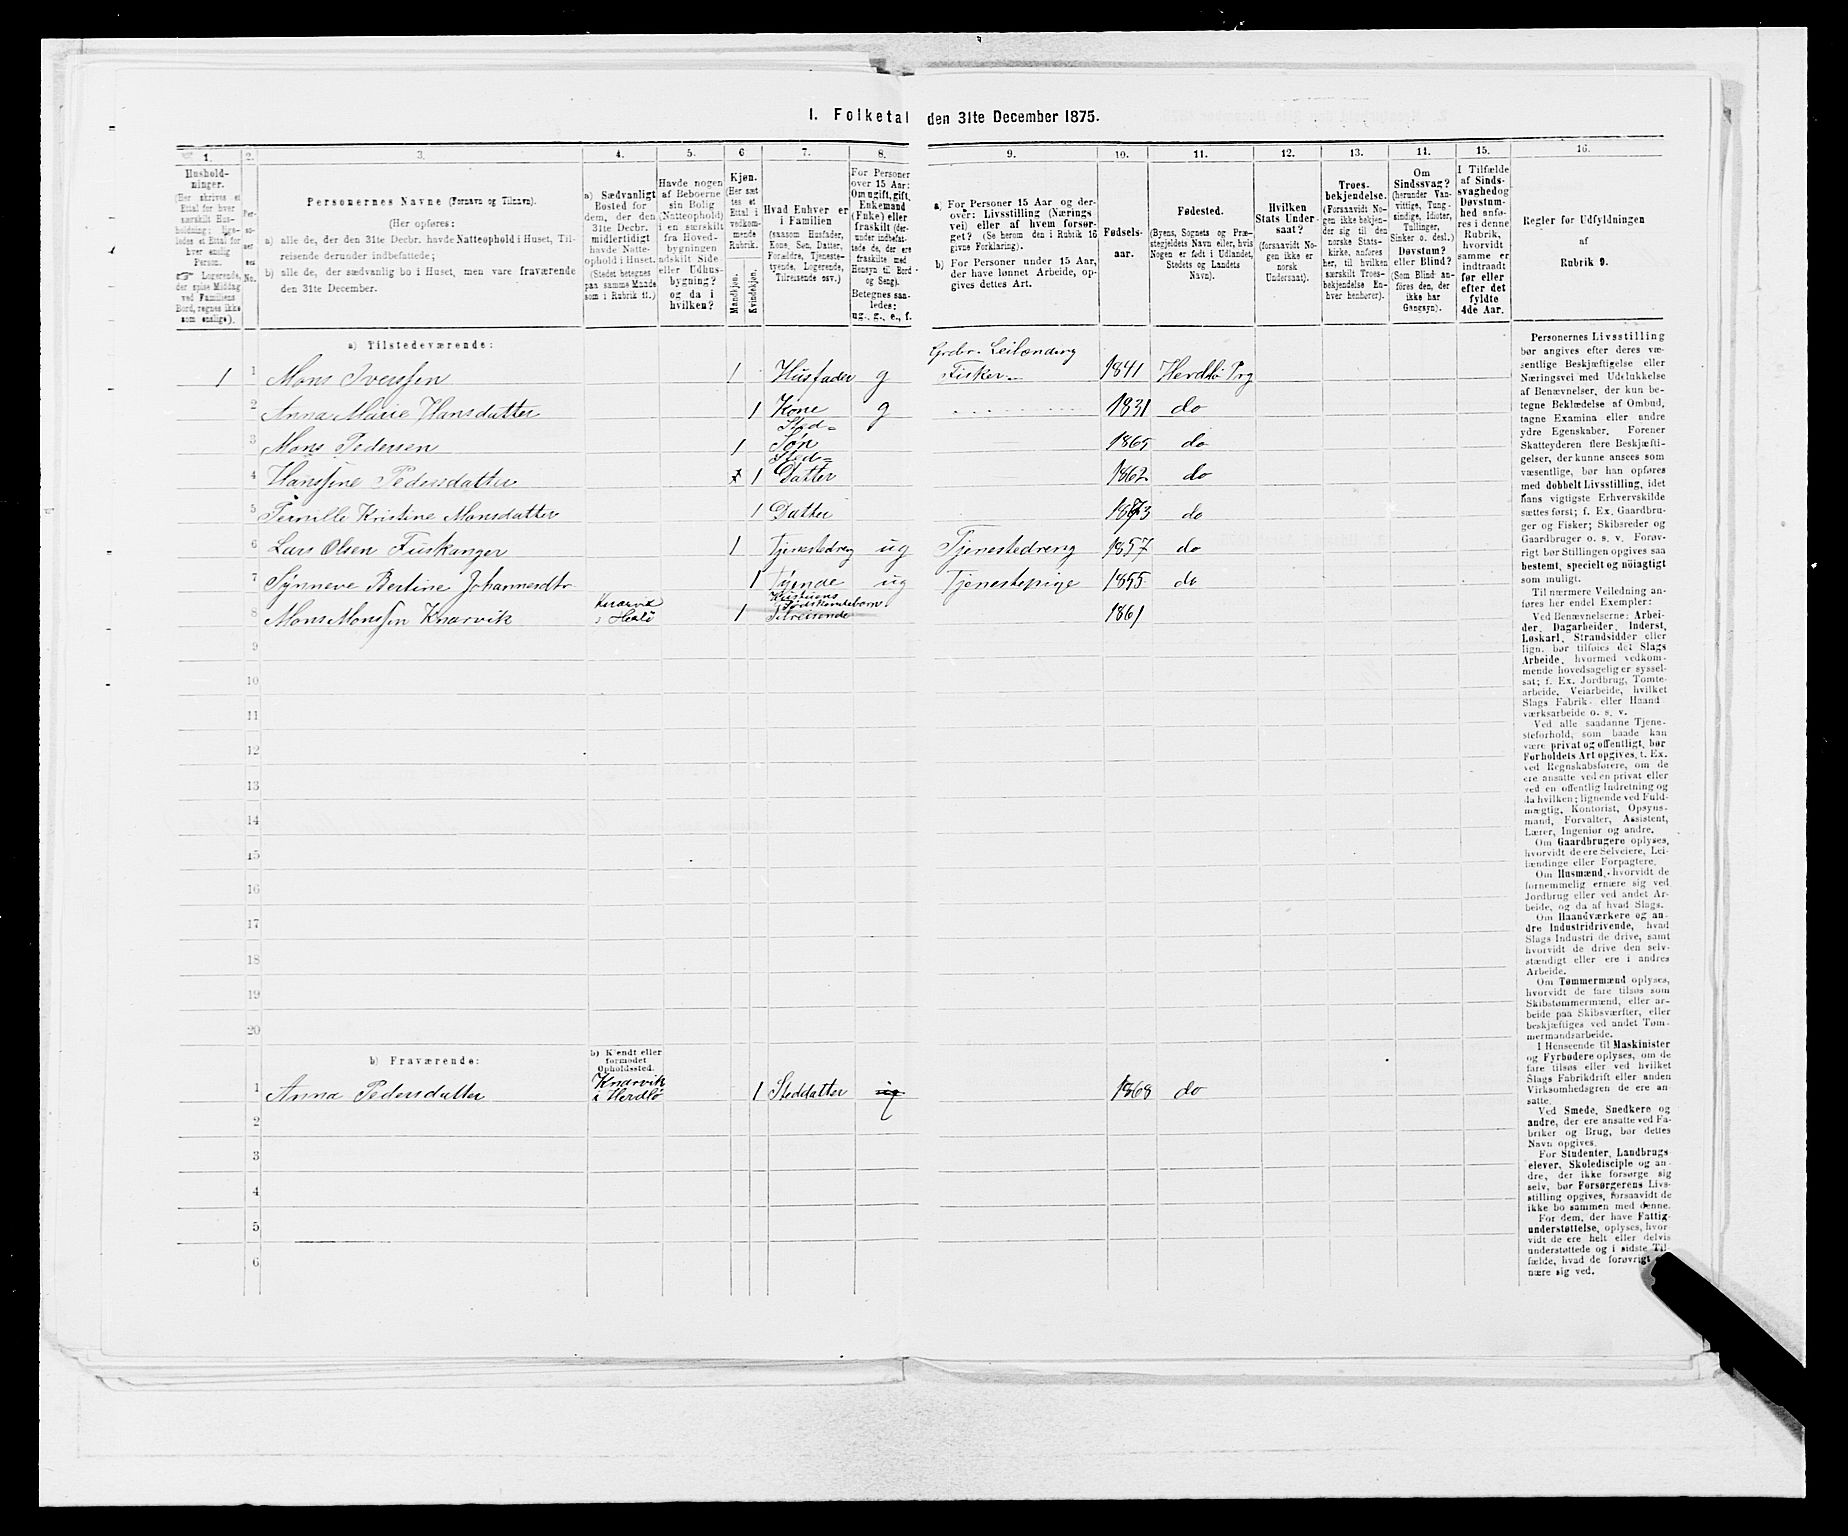 I. Folketal den 31te December 1875.
1. 2. 3. 4. 5. 6 7. 8. 9. 10. 11. 12. 13. 14. 15. 16.
Hushold-
ninger.
(Her skrives et
Ettal for hver
særskilt Hus-
holdning; lige-
ledes et Ettal for
hver enslig
Person.
☞ Logerende,
der spise Middag
ved Familiens
Bord, regnes ikke
som enslige).
Per-
so-
ner-
nes
No.
Personernes Navne (Fornavn og Tilnavn).
(Her opføres:
a) alle de, der den 31te Decbr. havde Natteophold i Huset, Til-
reisende derunder indbefattede;
b) alle de, der sædvanlig bo i Huset, men vare fraværende
den 31te December.
a) Sædvanligt
Bosted for
dem, der den
31te Decbr.
midlertidigt
havde Natte-
ophold i Huset.
(Stedet betegnes
paa samme Maade
som i Rubrik 11.)
Havde nogen
af Beboerne
sin Bolig
(Natteophold)
i en særskilt
fra Hoved-
bygningen
adskilt Side-
eller Udhus-
bygning?
og da i
hvilken?
Kjøn.
(Her sæt-
tes et
Ettal i
vedkom-
mende
Rubrik.
Mandkjøn.
Kvindekjøn.
Hvad Enhver er
i Familien
(saasom Husfader,
Kone, Søn, Datter,
Forældre, Tjeneste-
tyende, Logerende,
Tilreisende osv.)
For Personer
over 15 Aar:
Om ugift, gift,
Enkemand
(Enke) eller
fraskilt (der-
under indbefat-
tede de, der ere
fraskilte med
Hensyn til Bord
og Seng).
Betegnes saa-
ledes:
ug., g., e., f.
a) For Personer 15 Aar og der-
over: Livsstilling (Nærings-
vei) eller af hvem forsør-
get? (Se herom den i Rubrik 16
givne Forklaring).
b) For Personer under 15 Aar,
der have lønnet Arbeide, op-
gives dettes Art.
Fødsels-
aar.
Fødested.
(Byens, Sognets og Præ-
stegjeldets Navn eller, hvis
Nogen er født i Udlandet,
Stedets og Landets
Navn).
Hvilken
Stats Under-
saat?
(forsaavidt No-
gen ikke er
norsk
Undersaat).
Troes-
bekjendelse.
(Forsaavidt No-
gen ikke bekjen-
der sig til den
norske Stats-
kirke, anføres
her, til hvilken
særskilt Troes-
bekjendelse En-
hver henhører).
Om
Sindssvag?
(herunder Van-
vittige, Tung-
sindige, Idioter,
Tullinger,
Sinker o. desl.)
Døvstum?
eller Blind?
(Som Blind an-
føres den, der
ikke har
Gangsyn).
I Tilfælde
af Sinds-
svaghed og
Døvstum-
hed anfø-
res i denne
Rubrik,
hvorvidt
samme er
indtraadt
før eller
efter det
fyldte
4de Aar.
Regler for Udfyldningen
af
Rubrik 9.
a) Tilstedeværende:
Grdbr. Leilænding
1 1 Mons Iverssen 1 Husfader g Fisker 1841 Herdlø Prg
2 Anna Marie Hansdatter 1 Kone g 1831 do
3 Mons Pedersen 1 Sted= Søn 1865 do
4 Hanssine Pedersdatter 1 Sted= Datter 1862 do
5 Pernille Kristine Monsdatter 1 Datter 1873 do
6 Lars Olsen Fuskanger 1 Tjenestedreng ug Tjenestedreng 1857 do
7 Synneve Bertine Johannesdtr 1 Tyende ug Tjenestepige 1855 do
8 Mons Monssen Knarvik Knarvik i 1 Tilreisende 1861
9
10
11
12
13
14
15
16
17
18
19
20
b) Fraværende:
b) Kjendt eller
formodet
Opholdssted.
1 Anna Pedersdatter Knarvik i Herdlø 1 Steddatter ug 1868 do
2
3
4
5
6
Personernes Livsstilling
bør angives efter deres væ-
sentlige Beskjæftigelse eller
Næringsvei med Udelukkelse
af Benævnelser, der kun be-
tegne Beklædelse af Ombud,
tagne Examina eller andre
ydre Egenskaber. Forener
Skatteyderen flere Beskjæfti-
gelser, der kunne ansees som
væsentlige, bør han opføres
med dobbelt Livsstilling, idet
hans vigtigste Erhvervskilde
sættes først; f. Ex. Gaardbru-
ger og Fisker; Skibsreder og
Gaardbruger o. s. v. Forøv-
rigt bør Stillingen opgives saa
bestemt, specielt og nøiagtigt
som muligt.
Til nærmere Veiledning an-
føres her endel Exempler:
Ved Benævnelserne: Arbei-
der, Dagarbeider, Inderst,
Løskarl, Strandsidder eller
lign. bør tilføies det Slags
Arbeide, hvormed vedkom-
mende hovedsagelig er syssel-
sat; f. Ex. Jordbrug, Tomte-
arbeide, Veiarbeide, hvilket
Slags Fabrik- eller Haand
værksarbeide o. s. v.
Ved alle saadanne Tjene-
steforhold, som baade kan
være privat og offentligt, bør
Forholdets Art opgives, t. Ex.
ved Regnskabsførere, om de
ere ansatte ved en privat eller
ved en offentlig Indretning og
da hvilken; lignende ved Fuld-
mægtig, Kontorist, Opsyns-
mand, Forvalter, Assistent,
Lærer, Ingeniør og andre.
Om Gaardbrugere oplyses,
hvorvidt de ere Selveiere, Lei-
lændinge eller Forpagtere.
Om Husmænd, hvorvidt de
fornemmelig ernære sig ved
Jordbrug eller ved andet Ar-
beide, og da af hvad Slags.
Om Haandværkere og an-
dre Industridrivende, hvad
Slags Industri de drive, samt
hvorvidt de drive den selv-
stændigt eller ere i andres
Arbeide.
Om Tømmermænd oplyses,
hvorvidt de fare tilsøs som
Skibstømmermænd, eller ar-
beide paa Skibsværfter, eller
beskjæftiges ved andet Tøm-
mermandsarbeide.
I Henseende til Maskinister
og Fyrbødere oplyses, om de
fare tilsøs eller ved hvilket
Slags Fabrikdrift eller anden
Virksomhedsgren de ere an-
satte.
Ved Smede, Snedkere og
andre, der ere ansatte ved Fa-
briker og Brug, bør dettes
Navn opgives.
For Studenter, Landbrugs
elever, Skoledisciple og an-
dre, der ikke forsørge sig
selv, bør Forsørgerens Livs-
stilling opgives, forsaavidt de
ikke bo sammen med denne.
For dem, der have Fattig-
understøttelse, oplyses, hvor-
vidt de ere helt eller delvis
understøttede og i sidste Til-
fælde, hvad de forøvrigt
nære sig ved.